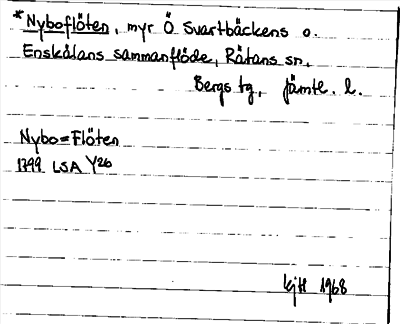 *Nyboflöten, myr Ö Svartbäckens o.
Enskålans sammanflöde, Råtans sn,
Bergs tg, Jämtl. l.
Nybo=Flöten
1799 LSA Y26
kjH 1968